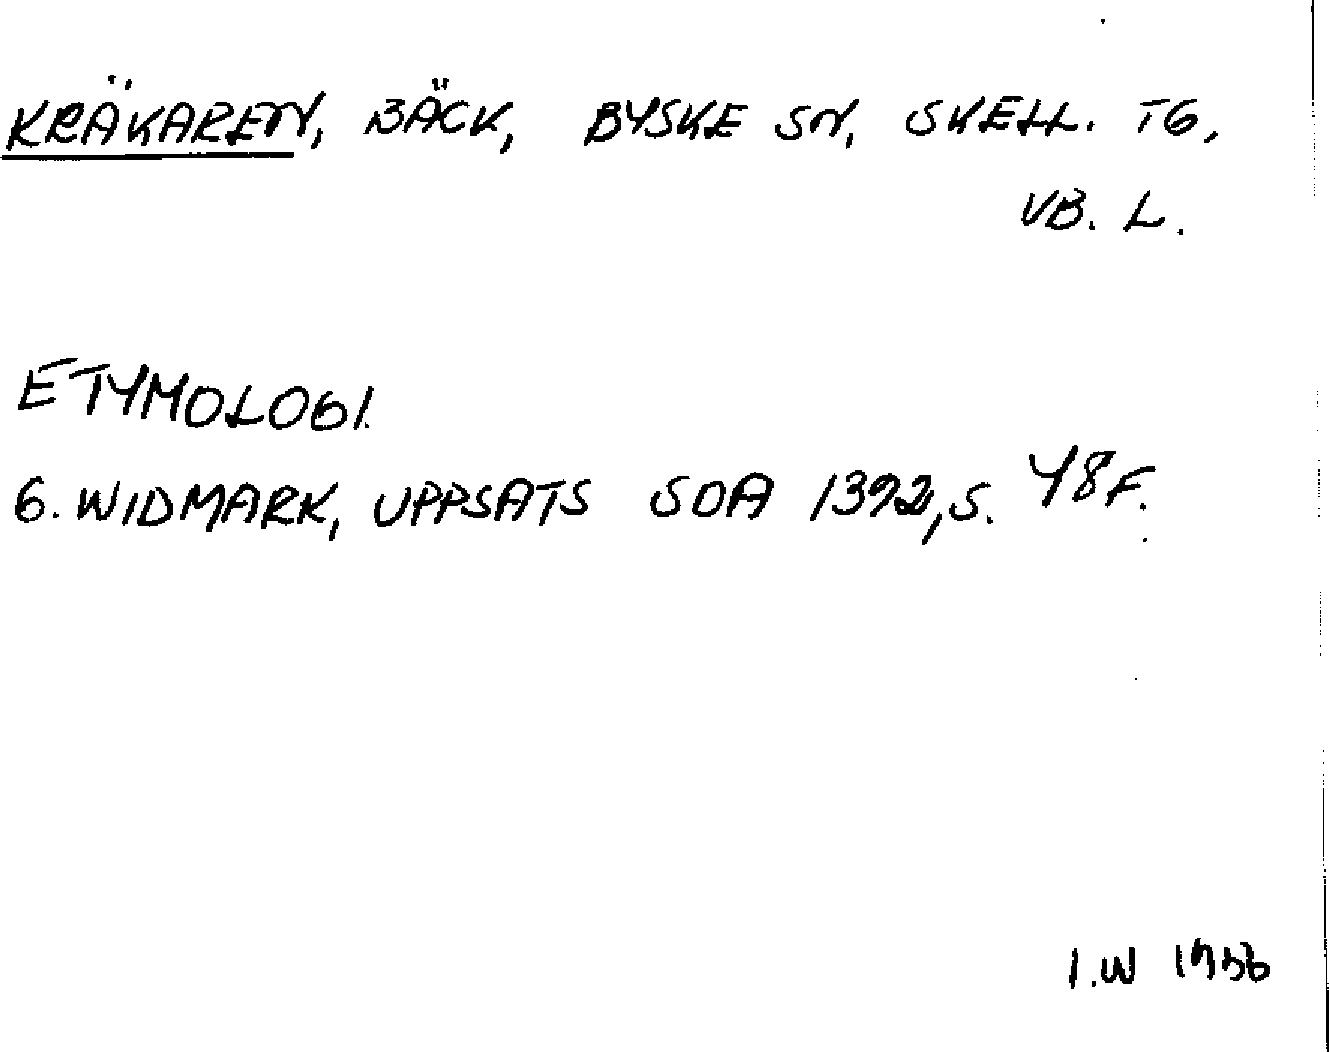 KRÄKAREN, BÄCK, BYSKE SN, SKELL. TG,
VB. L.
ETYMOLOGI.
G. WIDMARK, UPPSATS SOA 1392, S. 48 F.
I.W 1966